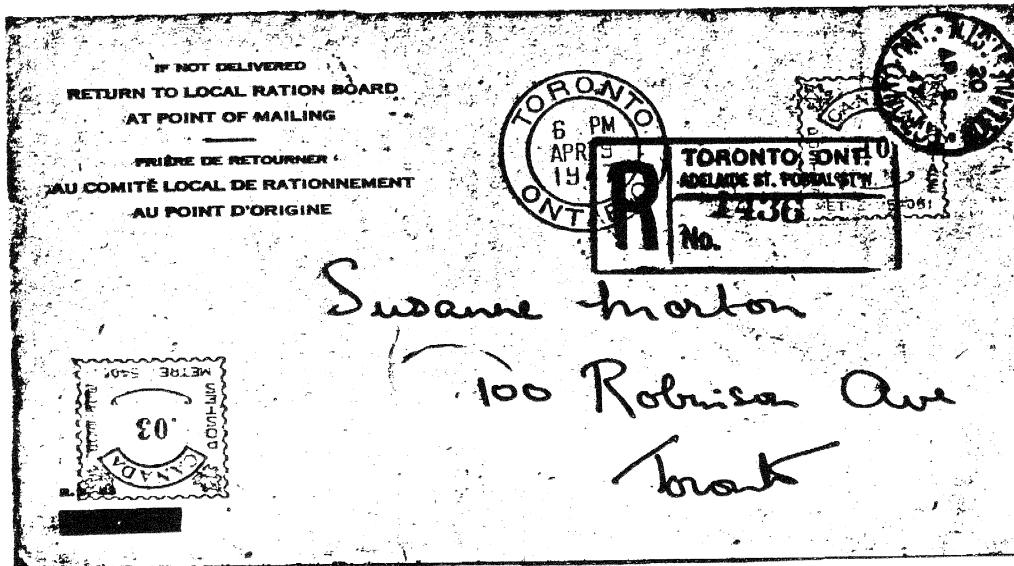 IF NOT DELIVERED
RETURN TO LOCAL RATION BOARD
AT POINT OF MAILING
PRIÈRE DE RETOURNER
AU COMITÉ LOCAL DE RATIONNEMENT
AU POINT D'ORIGINE
TORONTO
6 PM
APR 9
19
ONTARIO
R
TORONTO, ONT.
ADELAIDE ST. POSTAL STN
1436
No.
20
.10
Susanne Morton
100 Robinson Ave
Toronto
METRE
POSTES
.03
CANADA